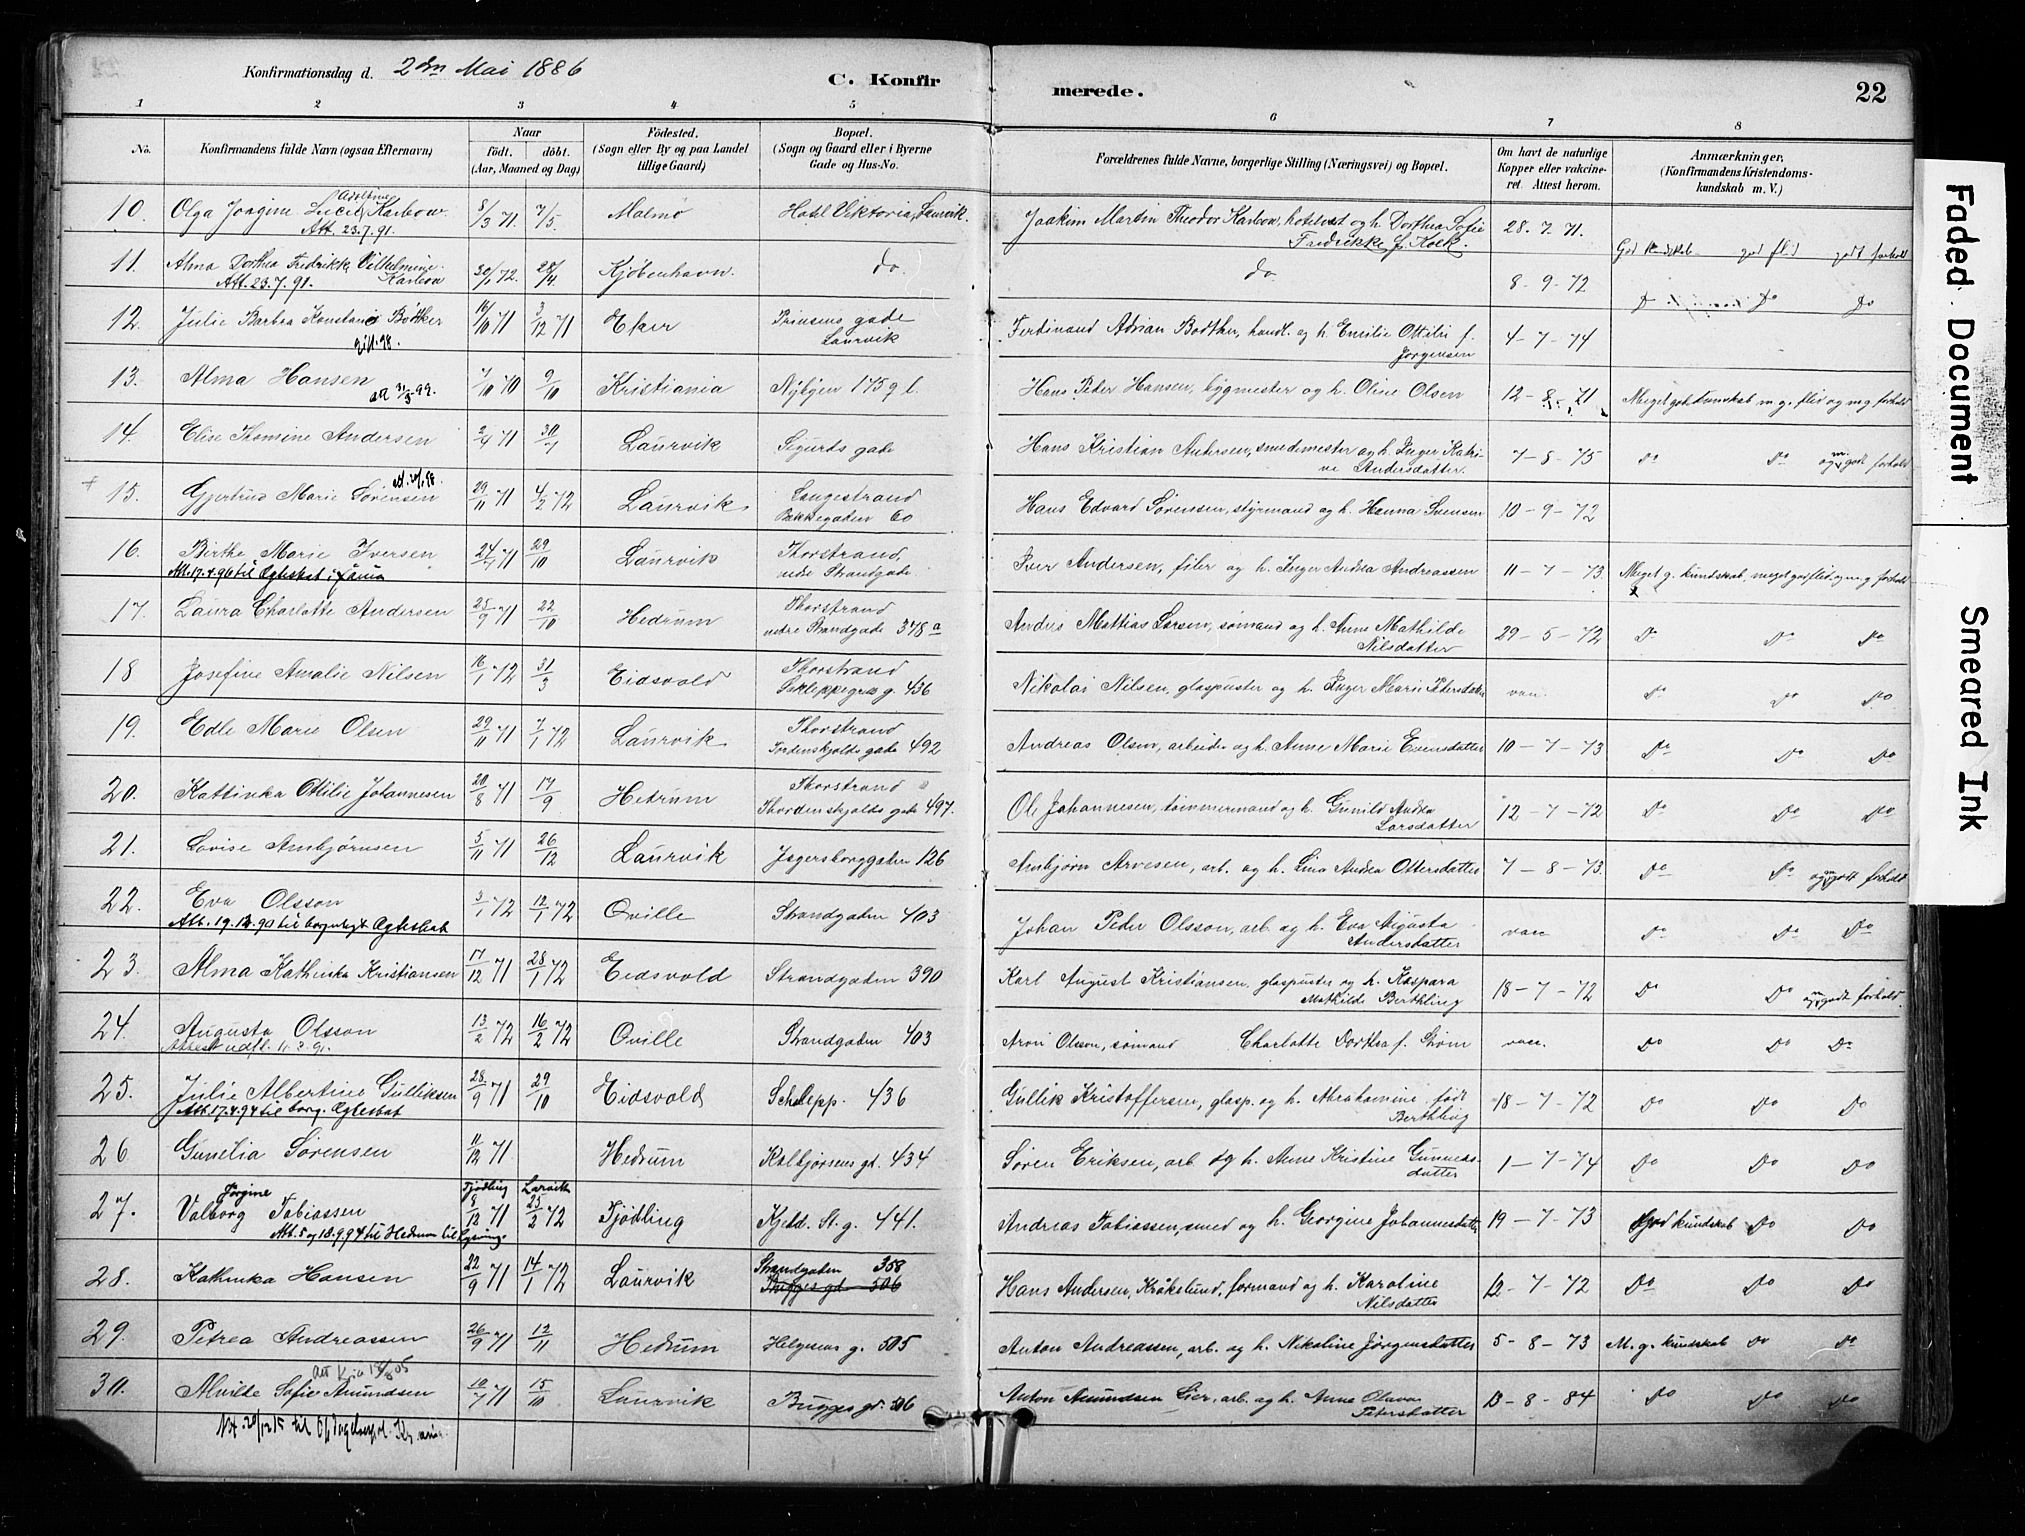 Konfirmationsdag d. 2den Mai 1886
C. Konfirmerede.
22
1 2 3 4 5 6 7 8
No.
Konfirmandens fulde Navn (ogsaa Efternavn)
Naar
födt. döbt.
(Aar, Maaned og Dag)
Födested.
(Sogn eller By og paa Landet tillige Gaard)
Bopæl.
(Sogn og Gaard eller i Byerne Gade og Hus-No.
Forældrenes fulde Navne, borgerlige Stilling (Næringsvei) og Bopæl.
Om havt de naturlige Kopper eller vakcineret. Attest herom.
Anmærkninger,
(Konfirmandens Kristendomskundskab m. V.)
10. Olga Jorgine Lucie Adolfine Karlow 8/3 71 7/5 Malmö Hotel Viktoria, Laurvik. Joakim Martin Theodor Karlow, hotelvært og h. Dorthea Sofie Fredrikke f. Kock. 28.7.71. God kundskab god flid godt forhold
Att. 23.7.91.
11. Alma Dorthea Fredrikke Vilhelmine Karlow 30/1 72. 28/4 Kjöbenhavn. do. do 8-9-72 Do Do Do
Att. 23.7.91.
12. Julie Barbra Konstance Bödtker 16/10 71 3/12 71 Eker Prinsens gade Laurvik Ferdinand Adrian Bödtker, handl. og h. Emilie Ottilie f. Jorgensen 4-7-74
13. Alma Hansen 7/10 70 9/10 Kristiania Nybyen 175 g.l. Hans Peter Hansen, bygmester og h. Oline Olsen 12-8-71 Meget god kundskab m.g. flid og m.g. forhold
14. Elise Thomine Andersen 2/4 71 30/4 Laurvik Sigurds gade Hans Kristian Andersen, smedemester og h. Inger Katrine Andersdatter. 7-8-75 Do Do og m. godt forhold
15. Gjertrud Marie Sörensen 29/11 71 4/2 72 Laurvik Langestrand Bakkegaden 60 Hans Edvard Sörensen, styrmand og h. Hanna Svensen 10-9-72
16. Birthe Marie Iversen 24/9 71 29/10 Laurvik Thorstrand nedre Strandgade Iver Andersen, filer og h. Inger Andrea Andreassen 11-7-73. Meget g. kundskab, meget god flid og m.g. forhold
Att. 17.4.96 til Ægteskab i
17. Laura Charlotte Andersen 25/9 71 22/10 Hedrum Thorstrand nedre Strandgade 378 a Anders Mattias Larsen, sömand og h. Anne Mathilde Nilsdatter 29-5-72 Do Do Do
18 Josefine Amalie Nilsen 16/1 72 31/3 Eidsvold Thorstrand g. 436 Nikolai Nilsen, glaspuster og h. Inger Marie Petersdatter vacc. Do Do Do
19. Edle Marie Olsen 29/11 71 7/1 72 Laurvik Thorstrand Tordenskjolds gade 492 Andreas Olsen, arbeider og h. Anne Marie Evensdatter 10-7-73 Do Do Do
20. Kattinka Ottilie Johannesen 20/8 71 17/9 Hedrum Thorstrand Thordenskjolds gade 497. Ole Johannesen, tömmermand og h. Gunild Andrea Larsdatter 12-7-72 Do Do Do
21. Lovise Arnbjörnsen 5/11 71 26/12 Laurvik Jegersborggaden 126 Arnbjörn Arvesen, arb. og h. Lina Andrea Ottersdatter 7-8-73. Do Do og m. godt forhold
22. Eva Olsson 3/1 72 12/1 72 Oville Strandgaden 403 Johan Peder Olsson, arb. og h. Eva Augusta Andersdatter vacc Do Do Do
Att. 19.12.90 til borgerligt Ægteskab
23. Alma Kathinka Kristiansen 17/12 71 28/1 72 Eidsvold Strandgaden 390 Karl August Kristiansen, glaspuster og h. Kaspara Mathilde Berthling 18-7-72 Do Do og m godt forhold.
24. Augusta Olsson 13/2 72 16/2 72 Oville Strandgaden 403 Aron Olsson, sömand Charlotte Dorthea f. Ström vacc. Do Do Do
Attest udst. 11.3.91.
25. Julie Albertine Gulliksen 28/9 71 29/10 Eidsvold Schlepp. 436 Gullik Kristoffersen, glasp. og h. Abrahamine födt Berthling 18-7-72 Do Do Do
Att. 17.4.94 til borg. Ægteskab
26 Gunelia Sörensen 11/12 71 Hedrum Kolbjörsens gd. 434 Sören Eriksen, arb. og h. Anne Kristine Gunnersdatter 1-7-74 Do Do Do
27. Valborg Jörgine Tobiassen Tjödling 8/12 71 Larvik 25/2 72 Tjödling Kjeld St. g. 441. Andreas Tobiassen, smed og h. Georgine Johannesdatter 19-7-73 God kundskab Do Do
Att. 5 og 18.9.94 til Hedrum til Lysning
28. Kathinka Hansen 22/9 71 14/1 72 Laurvik Strandgaden 358 Bugges gd 506 Hans Andersen, Kråkslund, formand og h. Karoline Nilsdatter 12-7-72 Do Do Do
29. Petrea Andreassen 26/9 71 12/11 Hedrum Helgesens g. 505 Anton Andreassen, arb. og h. Nikoline Jörgensdatter 5-8-73 M.g. kundskab Do Do
30. Alvilde Sofie Amundsen 10/7 71 15/10 Laurvik Bugges gd. 506 Anton Amundsen Lier, arb. og h. Anne Olava Petersdatter 13-8-84 Do Do Do
Faded Document
Smeared Ink